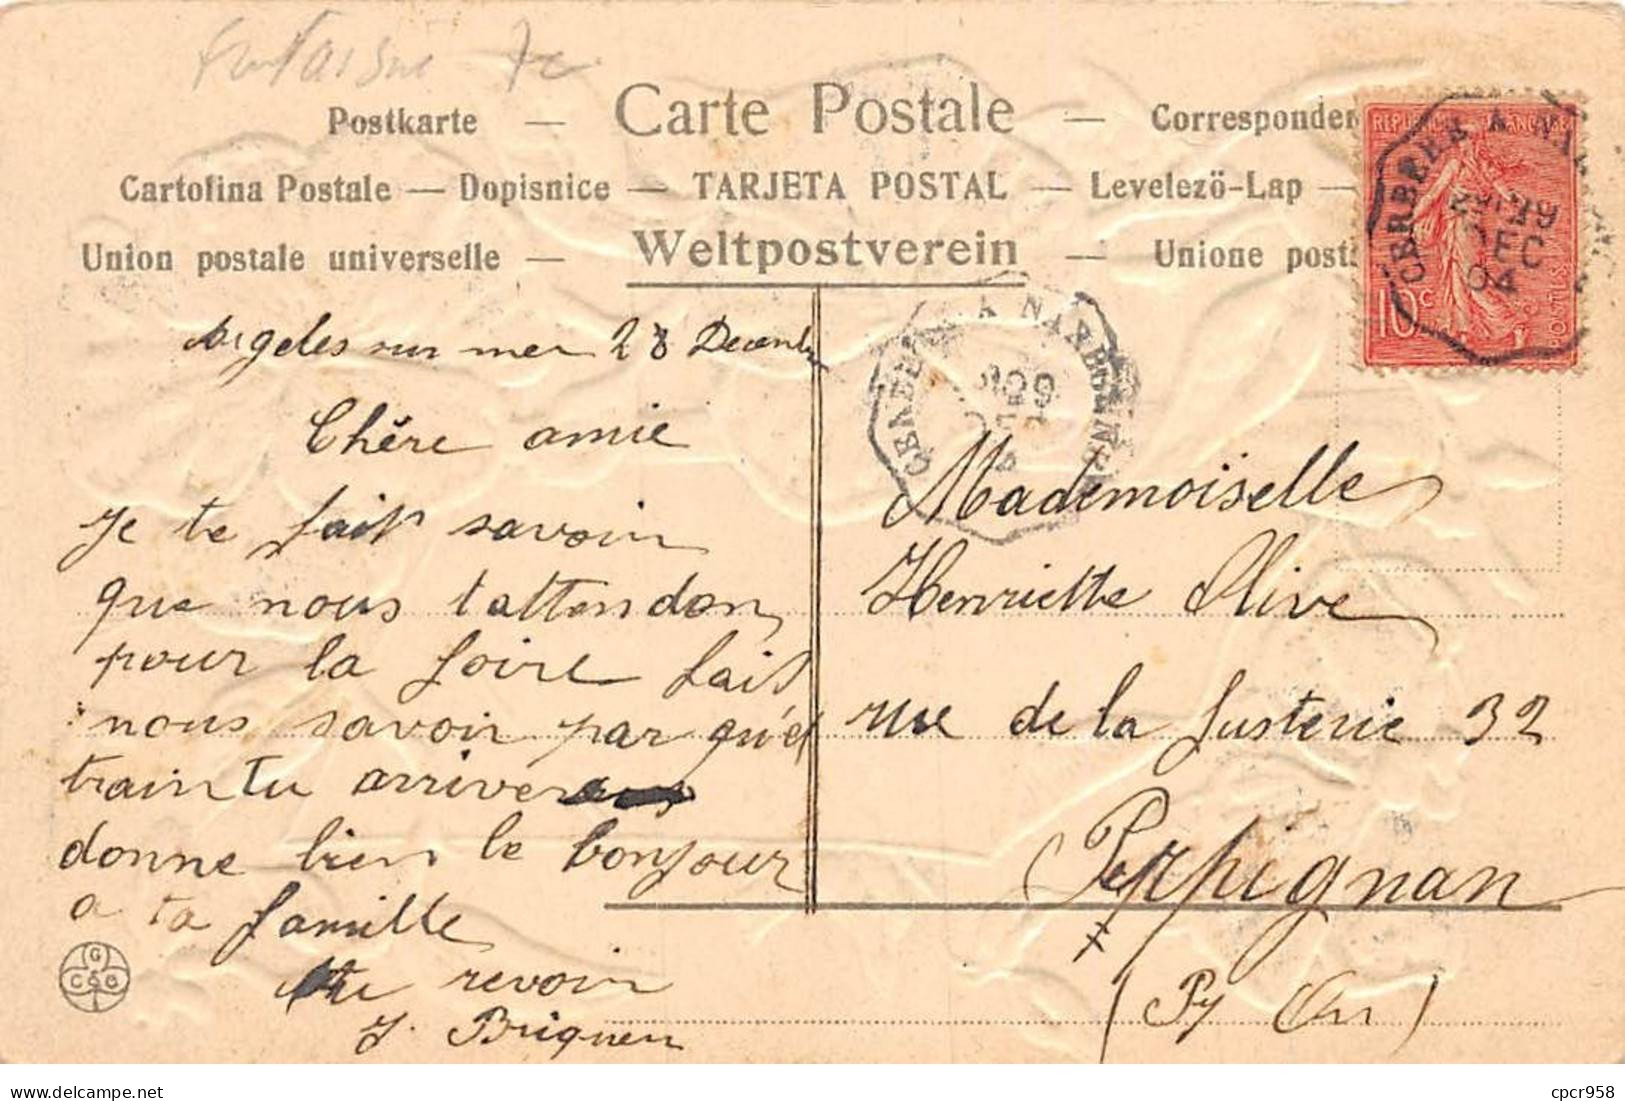 Fantaisie 7c
Postkarte — Carte Postale — Corresponden
Cartolina Postale — Dopisnice — TARJETA POSTAL — Levelezö-Lap —
Union postale universelle — Weltpostverein — Unione post
REPUBLIQUE FRANÇAISE
10c
POSTES
CERBERE A NA
29
DEC
04
CERBERE A NARBONNE
29
DEC
Argeles sur mer 28 Decembre
Chére amie
Je te fait savoir
que nous tattendon
pour la foire fait
nous savoir par qu'el
train tu arrivera
donne bien le bonjour
a ta famille
Au revoir
J. Briqueu
Mademoiselle
Henriette Olive
rue de la fusterie 32
Perpignan
(Py Or)
G
C & C
cpcr958